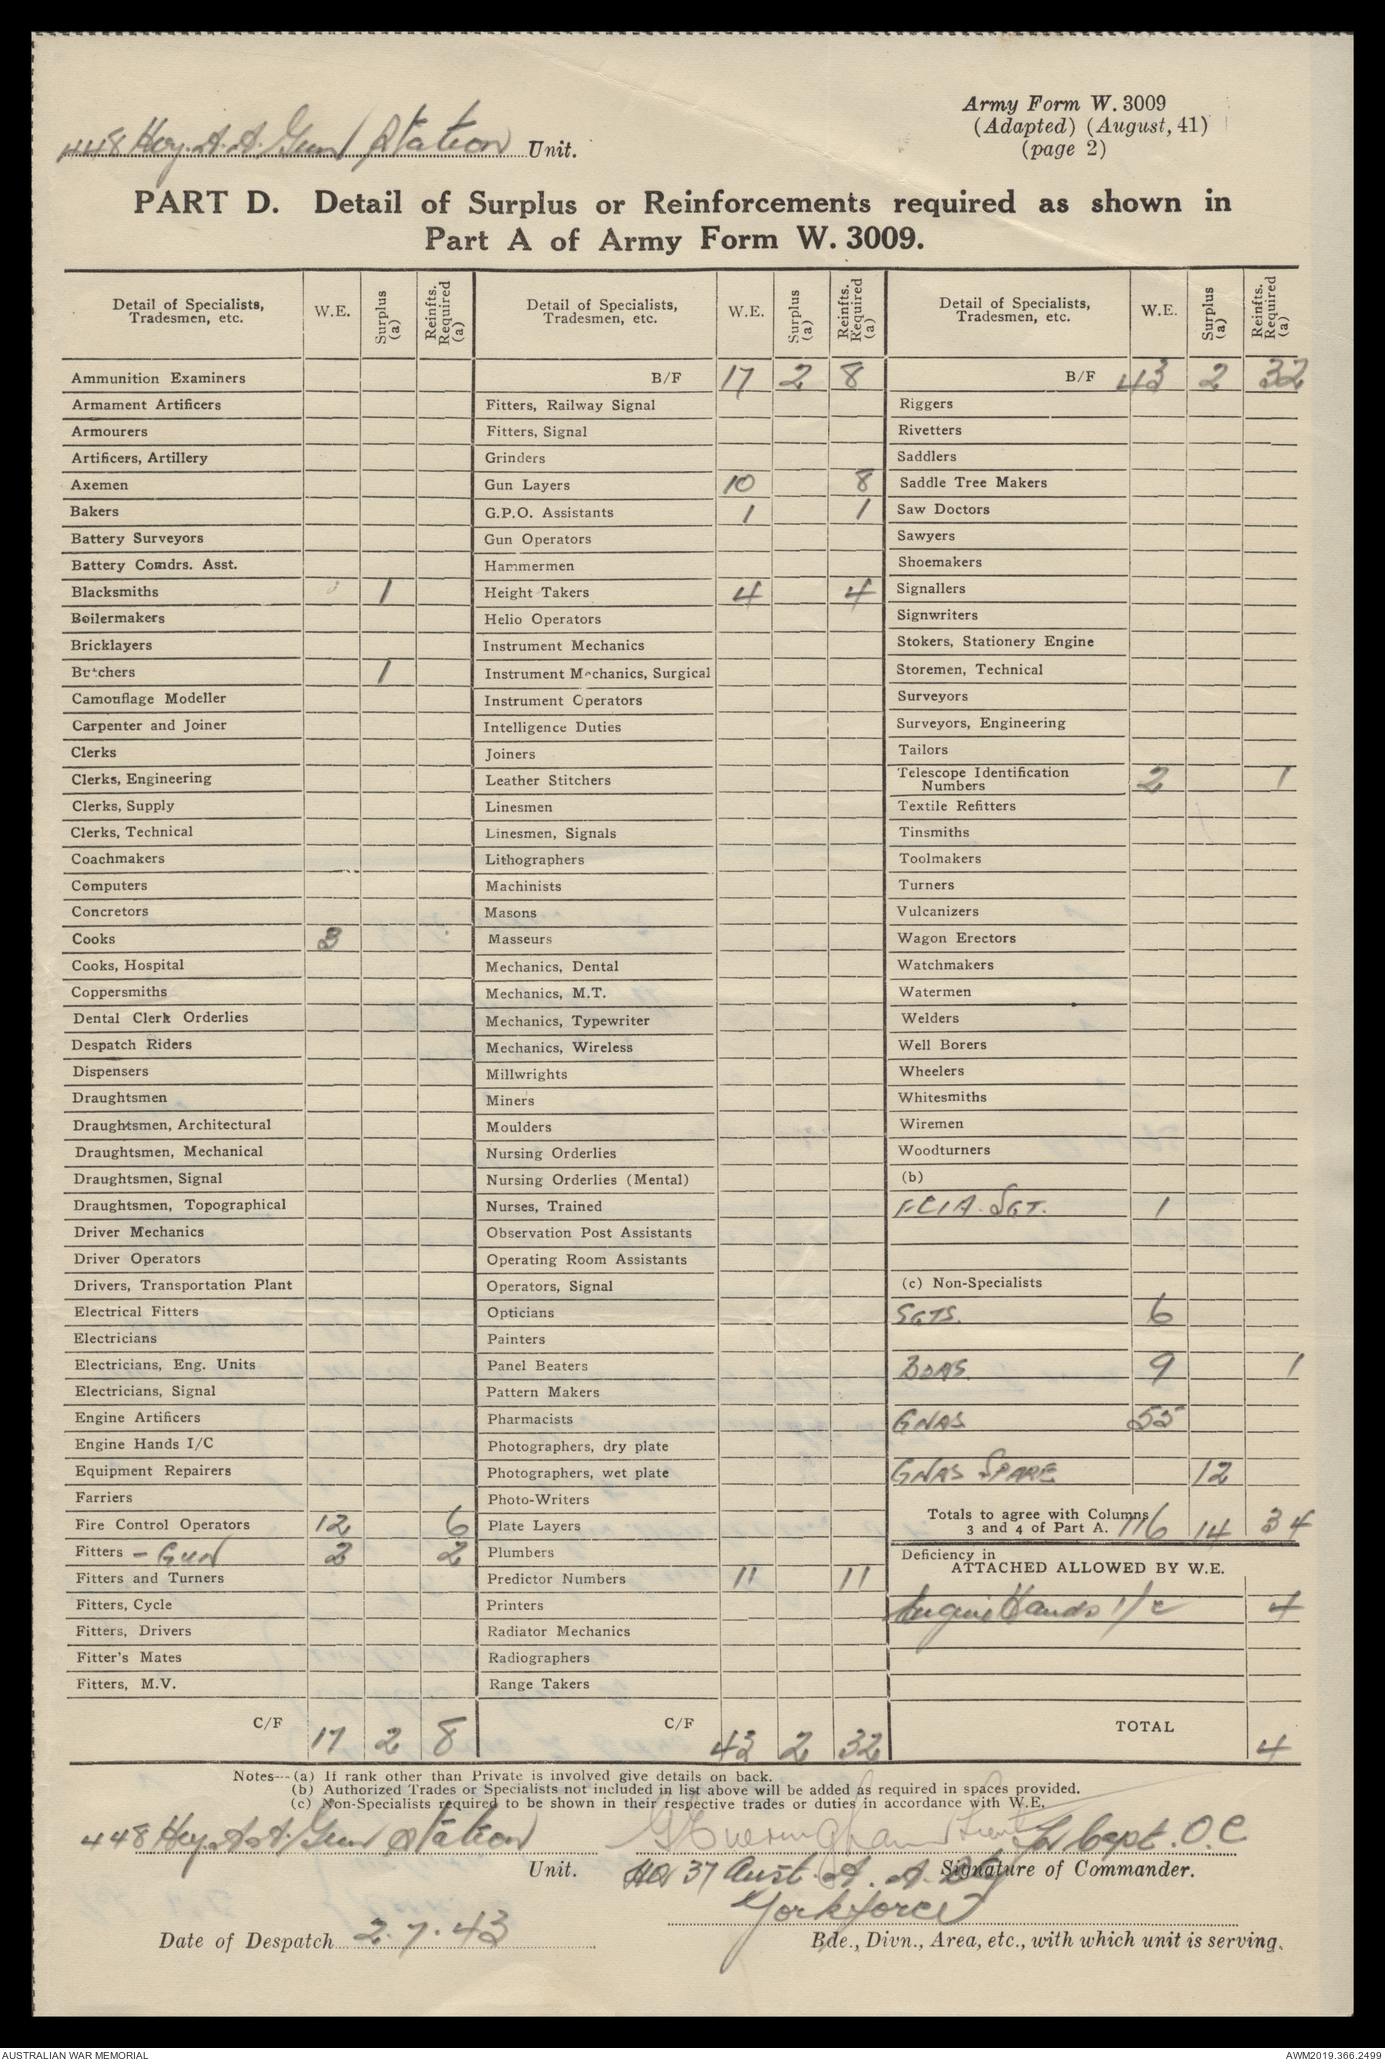 448 Hvy. A.A. Gun Station Unit.
Army Form W. 3009
(Adapted) (August, 41)
(page 2)
PART D. Detail of Surplus or Reinforcements required as shown in
Part A of Army Form W. 3009.
Detail of Specialists, Tradesmen, etc. W.E. Surplus (a) Reinfts. Required (a)
Ammunition Examiners
Armament Artificers
Armourers
Artificers, Artillery
Axemen
Bakers
Battery Surveyors
Battery Comdrs. Asst.
Blacksmiths 1
Boilermakers
Bricklayers
Butchers 1
Camouflage Modeller
Carpenter and Joiner
Clerks
Clerks, Engineering
Clerks, Supply
Clerks, Technical
Coachmakers
Computers
Concretors
Cooks 3
Cooks, Hospital
Coppersmiths
Dental Clerk Orderlies
Despatch Riders
Dispensers
Draughtsmen
Draughtsmen, Architectural
Draughtsmen, Mechanical
Draughtsmen, Signal
Draughtsmen, Topographical
Driver Mechanics
Driver Operators
Drivers, Transportation Plant
Electrical Fitters
Electricians
Electricians, Eng. Units
Electricians, Signal
Engine Artificers
Engine Hands I/C
Equipment Repairers
Farriers
Fire Control Operators 12 6
Fitters - Gun 2 2
Fitters and Turners
Fitters, Cycle
Fitters, Drivers
Fitter's Mates
Fitters, M.V.
C/F 17 2 8
Detail of Specialists, Tradesmen, etc. W.E. Surplus (a) Reinfts. Required (a)
B/F 17 2 8
Fitters, Railway Signal
Fitters, Signal
Grinders
Gun Layers 10 8
G.P.O. Assistants 1 1
Gun Operators
Hammermen
Height Takers 4 4
Helio Operators
Instrument Mechanics
Instrument Mechanics, Surgical
Instrument Operators
Intelligence Duties
Joiners
Leather Stitchers
Linesmen
Linesmen, Signals
Lithographers
Machinists
Masons
Masseurs
Mechanics, Dental
Mechanics, M.T.
Mechanics, Typewriter
Mechanics, Wireless
Millwrights
Miners
Moulders
Nursing Orderlies
Nursing Orderlies (Mental)
Nurses, Trained
Observation Post Assistants
Operating Room Assistants
Operators, Signal
Opticians
Painters
Panel Beaters
Pattern Makers
Pharmacists
Photographers, dry plate
Photographers, wet plate
Photo-Writers
Plate Layers
Plumbers
Predictor Numbers 11 11
Printers
Radiator Mechanics
Radiographers
Range Takers
C/F 43 2 32
Detail of Specialists, Tradesmen, etc. W.E. Surplus (a) Reinfts. Required (a)
B/F 43 2 32
Riggers
Rivetters
Saddlers
Saddle Tree Makers
Saw Doctors
Sawyers
Shoemakers
Signallers
Signwriters
Stokers, Stationery Engine
Storemen, Technical
Surveyors
Surveyors, Engineering
Tailors
Telescope Identification
Numbers 2 1
Textile Refitters
Tinsmiths
Toolmakers
Turners
Vulcanizers
Wagon Erectors
Watchmakers
Watermen
Welders
Well Borers
Wheelers
Whitesmiths
Wiremen
Woodturners
(b)
SGT. 1
(c) Non-Specialists
SGTS. 6
BDRS. 9 1
GNRS 55
GNRS SPARE 12
Totals to agree with Columns
3 and 4 of Part A. 116 14 34
Deficiency in
ATTACHED ALLOWED BY W.E.
Engine Hands I/c 4
TOTAL 4
Notes—(a) If rank other than Private is involved give details on back.
(b) Authorized Trades or Specialists not included in list above will be added as required in spaces provided.
(c) Non-Specialists required to be shown in their respective trades or duties in accordance with W.E.
448 Hvy. A.A. Gun Station
Unit.
for Capt. O.C
Signature of Commander.
HQ 37 Aust. A. A. Bty
Yorkforce
Date of Despatch 2.7.43
Bde., Divn., Area, etc., with which unit is serving.
AUSTRALIAN WAR MEMORIAL
AWM2019.366.2499